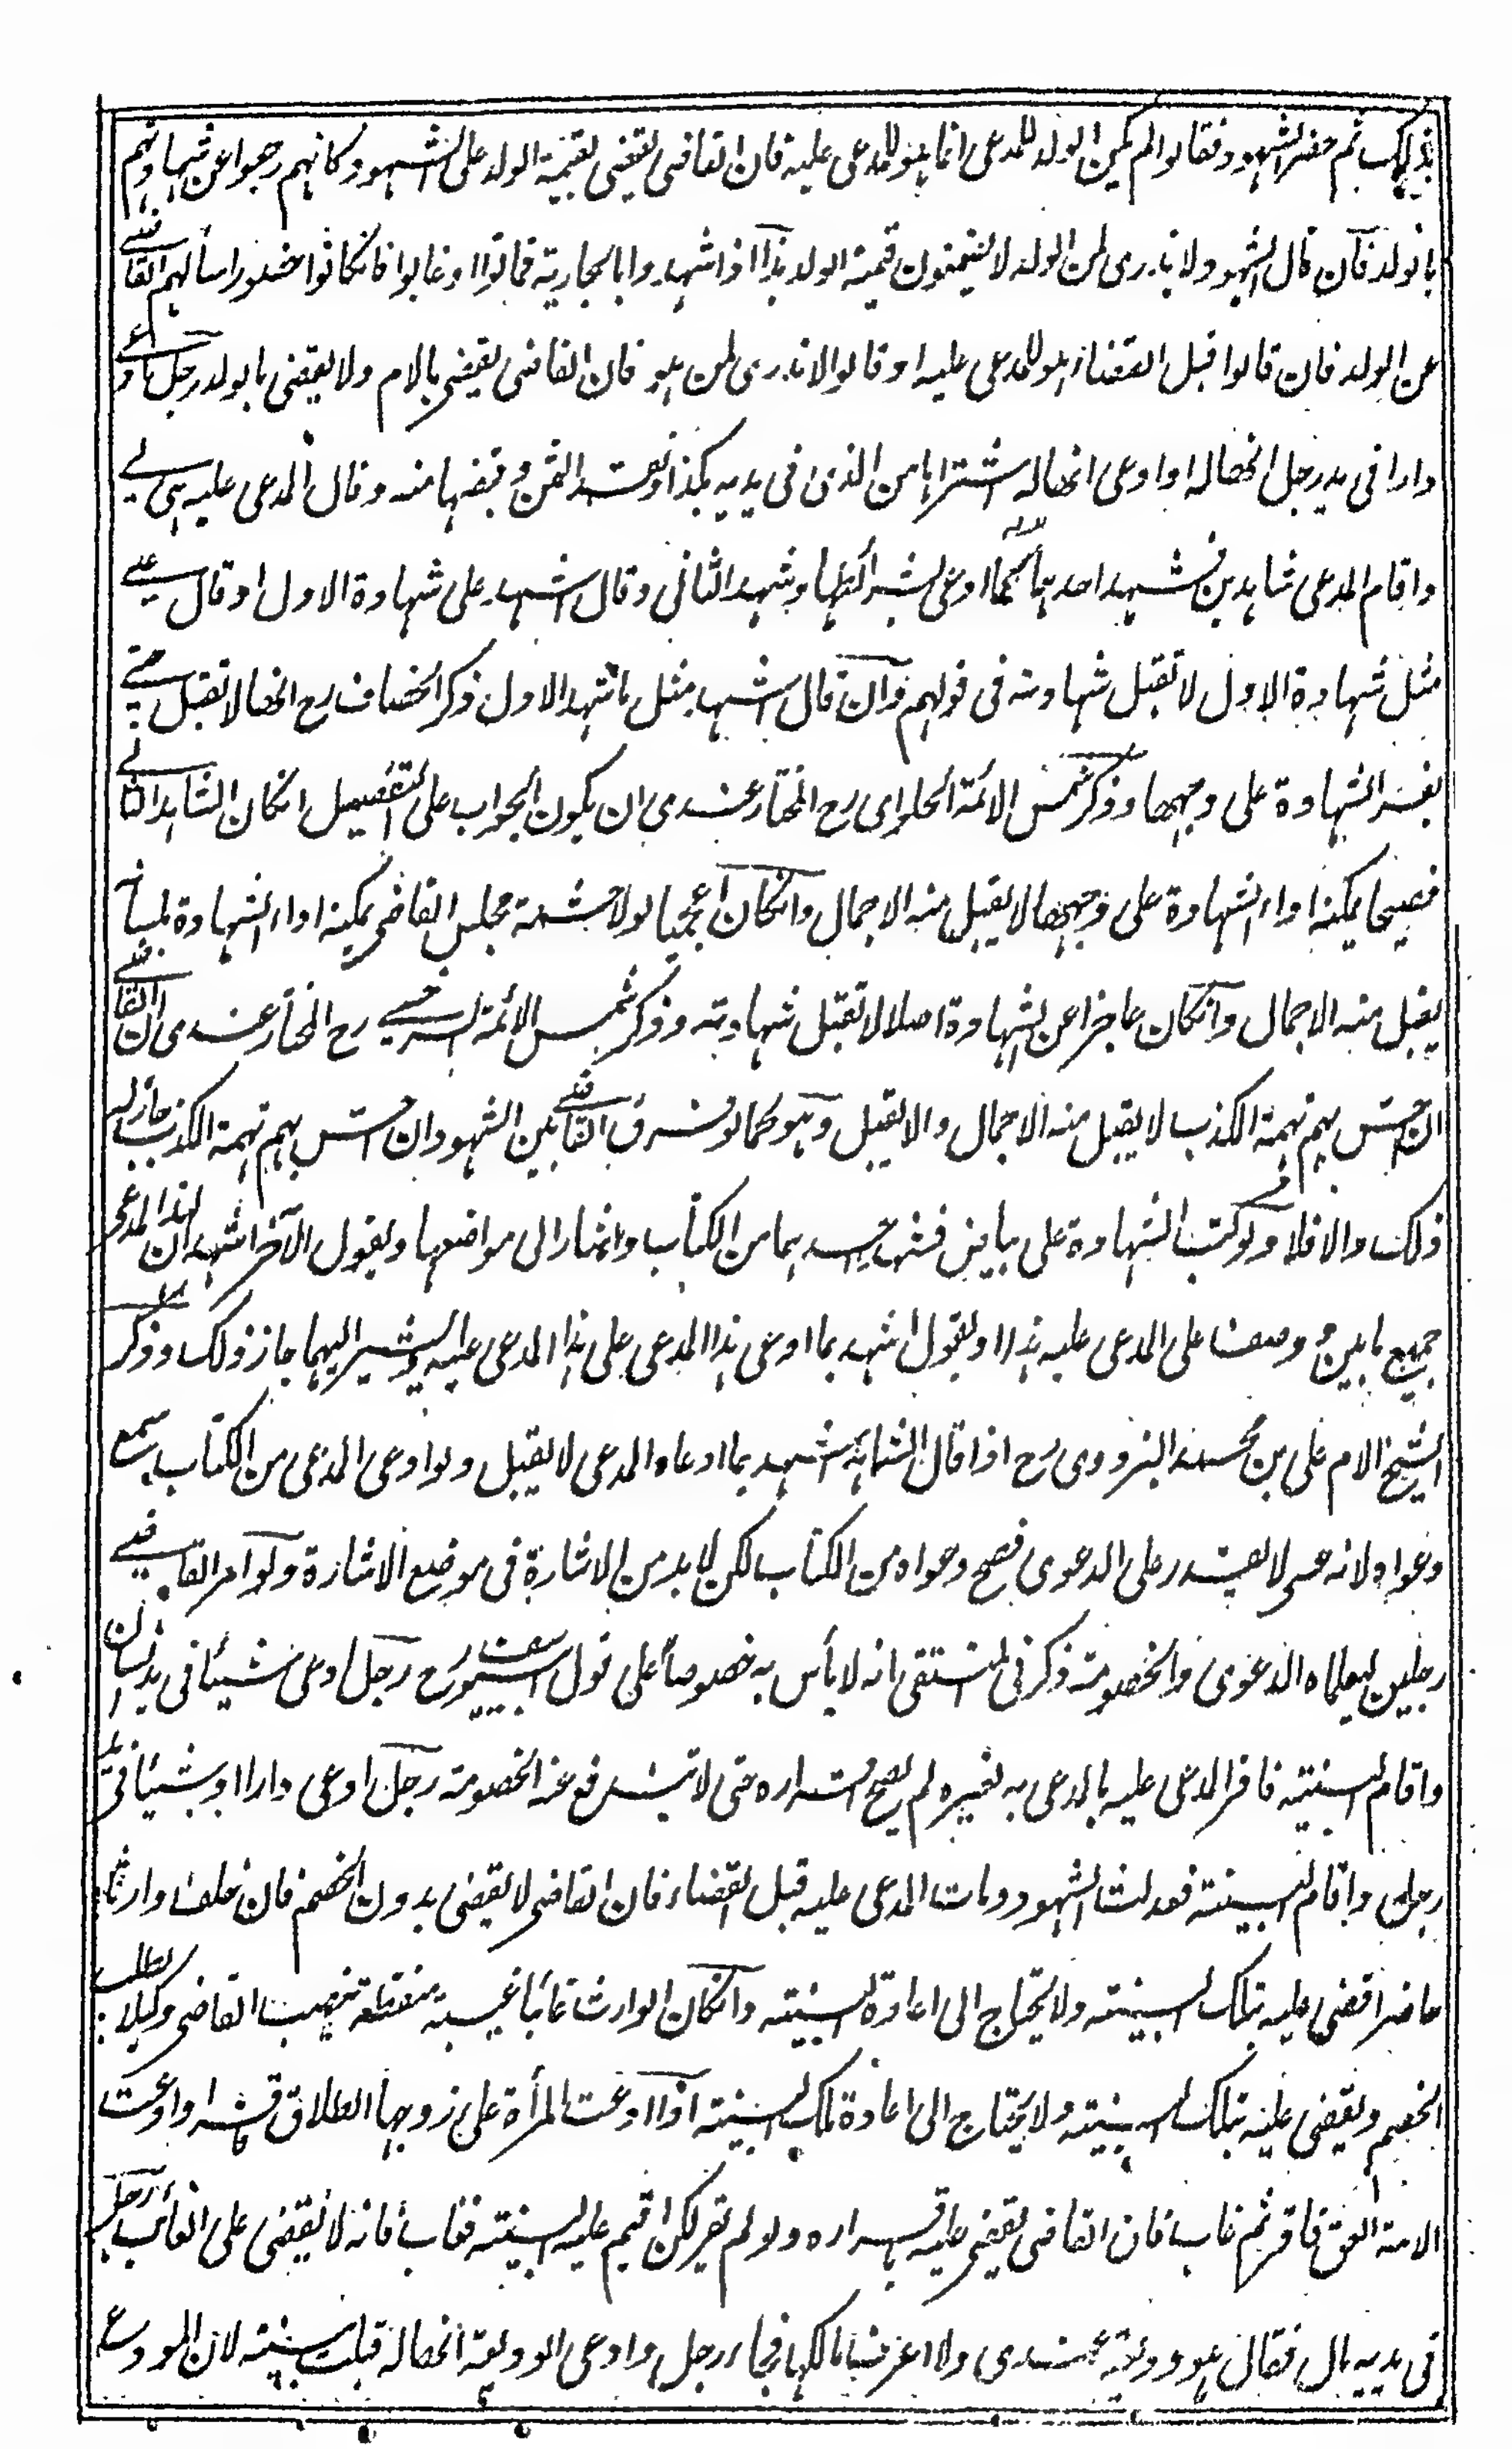 بذلك ثم حضر الشهود وقالوا لم يكن الولد للمدعي انما هو للمدعى عليه فان القاضي يقضي بقيمة الولد على الشهود كانهم رجعوا عن شهادتهم
بالولد فان قال الشهود لا ندري لمن الولد لا يضمنون قيمة الولد هذا اذا شهدوا بالجارية فماتوا او غابوا فانكانوا حضورا سألهم القاضي
عن الولد فان قالوا قبل القضاء هو للمدعى عليه او قالوا لا ندري لمن هو فان القاضي يقضي بالام ولا يقضي بالولد رجل ادعى
دارا في يد رجل انها له او ادعى انها له اشتراها من الذي في يديه بكذا ونقد الثمن وقبضها منه وقال المدعى عليه هي لي
واقام المدعي شاهدين فشهد احدهما كما ادعى بشرائطها وشهد الثاني وقال اشهد على شهادة الاول او قال على
مثل شهادة الاول لا تقبل شهادته في قولهم وان قال اشهد مثل ما شهد الاول ذكر الخصاف رح انها لا تقبل حتى
يفسر الشهادة على وجهها وذكر شمس الائمة الحلوائي رح المختار عندي ان يكون الجواب على التفصيل انكان الشاهد الثاني
فصيحا يمكنه اداء الشهادة على وجهها لا يقبل منه الاجمال وانكان اعجميا لولا حشمة مجلس القاضي يمكنه اداء الشهادة بلسانه
يقبل منه الاجمال وانكان عاجزا عن الشهادة اصلا لا تقبل شهادته وذكر شمس الائمة السرخسي رح المختار عندي ان القاضي
ان احس بهم تهمة الكذب لا يقبل منه الاجمال والا يقبل وهو كما لو فرق القاضي بين الشهود ان احس بهم تهمة الكذب جاز له
ذلك والا فلا ولو كتب الشهادة على بياض فشهد احدهما من الكتاب واشار الى مواضعها ويقول الآخر اشهد ان لهذا المدعي
جميع ما بين ووصف على المدعى عليه هذا او يقول اشهد بما ادعى هذا المدعي على هذا المدعى عليه ويشير اليهما جاز ذلك وذكر
الشيخ الامام علي بن محمد البزدوي رح اذا قال الشاهد اشهد بما ادعاه المدعي لا يقبل ولو ادعى المدعي من الكتاب يسمع
دعواه لانه عسى لا يقدر على الدعوى فصح دعواه من الكتاب لكن لا بد من الاشارة في موضع الاشارة ولو امر القاضي
رجلين ليعلماه الدعوى والخصومة ذكر في المنتقى انه لا بأس به خصوصا على قول ابي يوسف رح رجل ادعى شيئا في يد انسان
واقام البينة فاقر المدعى عليه بالمدعى به لغيره لم يصح اقراره حتى لا تندفع عنه الخصومة رجل ادعى دارا او شيئا في يد
رجل واقام البينة فعدلت الشهود ومات المدعى عليه قبل القضاء فان القاضي لا يقضي بدون الخصم فان خلف وارثا
حاضرا قضي عليه بتلك البينة ولا يحتاج الى اعادة البينة وانكان الوارث غائبا غيبة منقطعة نصب القاضي وكيلا يطلب
الخصم ويقضي عليه بتلك البينة ولا يحتاج الى اعادة تلك البينة اذا ادعت المرأة على زوجها الطلاق فاقر او ادعت
الامة العتق فاقر ثم غاب فان القاضي يقضي عليه باقراره ولو لم يقر لكن اقيم عليه البينة فغاب فانه لا يقضى على الغائب رجل
في يديه مال فقال هو وديعة عندي ولا اعرف مالكها فجاء رجل وادعى الوديعة انها له قبلت بينته لان المودع